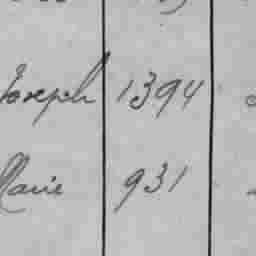 Joseph 1394
Marie 931